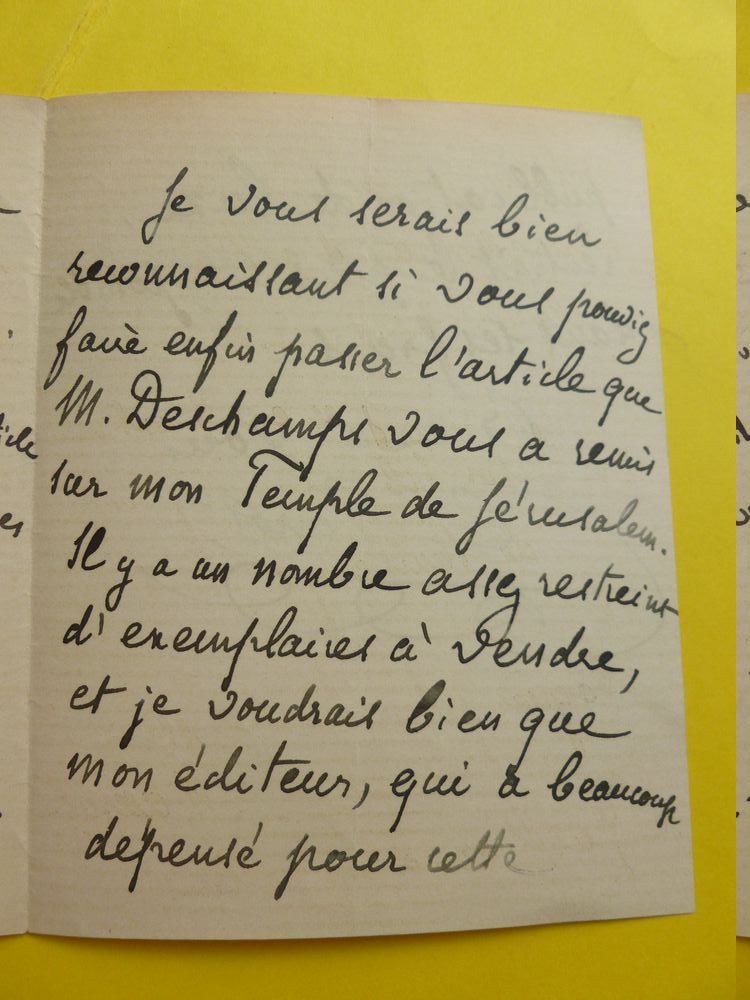 Je vous serais bien
reconnaissant si vous pouviez
faire enfin passer l'article que
M. Deschamps vous a remis
sur mon Temple de Jérusalem.
Il y a un nombre assez restreint
d'exemplaires à vendre,
et je voudrais bien que
mon éditeur, qui a beaucoup
dépensé pour cette